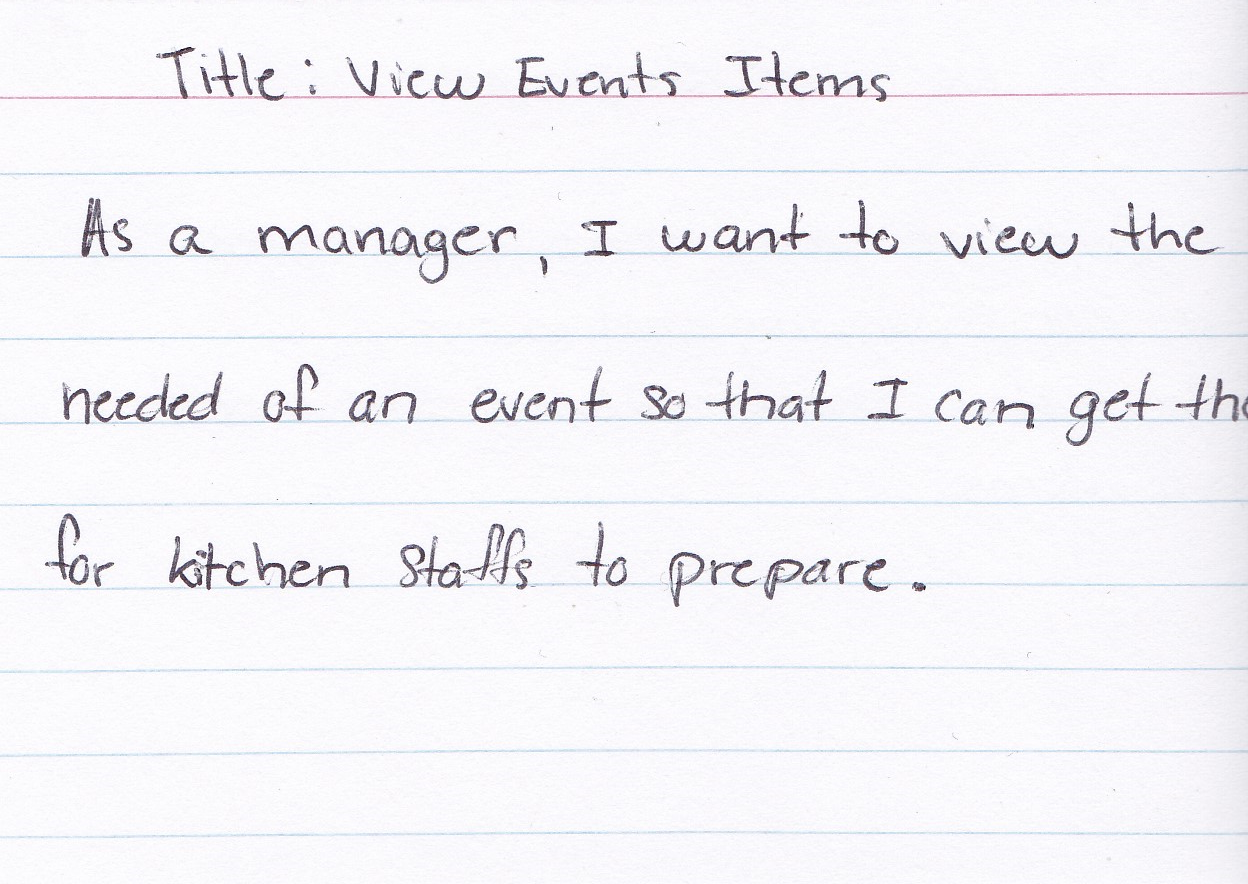 Title: View Events Items
As a manager, I want to view the
needed of an event so that I can get
for kitchen staffs to prepare.